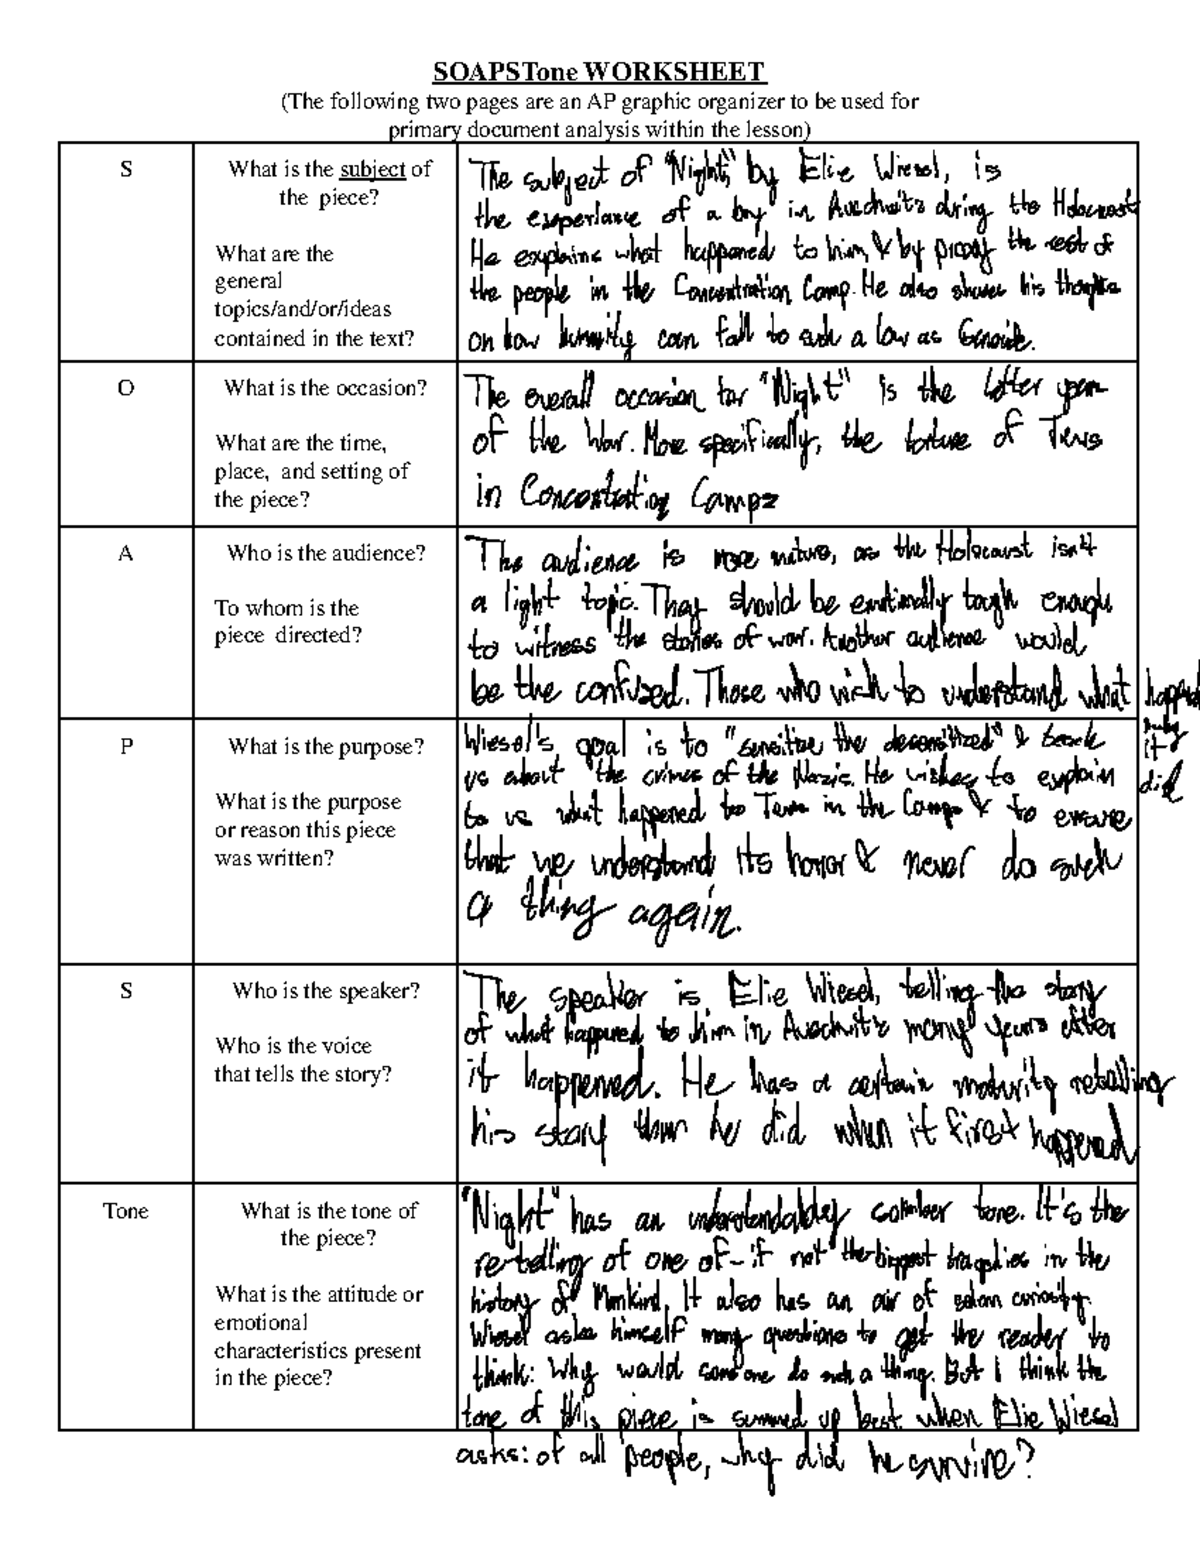 SOAPSTone WORKSHEET
(The following two pages are an AP graphic organizer to be used for
primary document analysis within the lesson)
S
What is the subject of
the piece?
What are the
general
topics/and/or/ideas
contained in the text?
The subject of "Night," by Elie Wiesel, is
the experiance of a boy in Auschwitz during the Holocaust
He explains what happened to him, & by proxy the rest of
the people in the Concentration Camp. He also shares his thoughts
on how humity can fall to such a low as Genocide.
O
What is the occasion?
What are the time,
place, and setting of
the piece?
The overall occasion for "Night" is the latter years
of the War. More specifically, the torture of Jews
in Concentration Camps
A
Who is the audience?
To whom is the
piece directed?
The audience is more mature, as the Holocaust isn't
a light topic. They should be emotinally tough enough
to witness the stories of war. Another audience would
be the confused. Those who wish to understand what happened
it
did
P
What is the purpose?
What is the purpose
or reason this piece
was written?
Wiesel's goal is to "sensitize the desensitized" & teach
us about the crimes of the Nazis. He wishes to explain
to us what happened to in the Camps & to ensure
that we understand its horror & never do such
a thing again.
S
Who is the speaker?
Who is the voice
that tells the story?
The speaker is Elie Wiesel, telling the story
of what happened to him in Auschwitz many years after
it happened. He has a certain maturity retelling
his story than he did when it first happened
Tone
What is the tone of
the piece?
What is the attitude or
emotional
characteristics present
in the piece?
"Night" has an understandabley somber tone. It's the
re-telling of one of - if not the biggest tragedies in the
history of Mankind. It also has an air of curiosity.
Wiesel asks himself many questions to get the reader to
think: Why would someone do such a thing. But I think the
tone of this piece is summed up best when Elie Wiesel
asks: of all people, why did he survive?